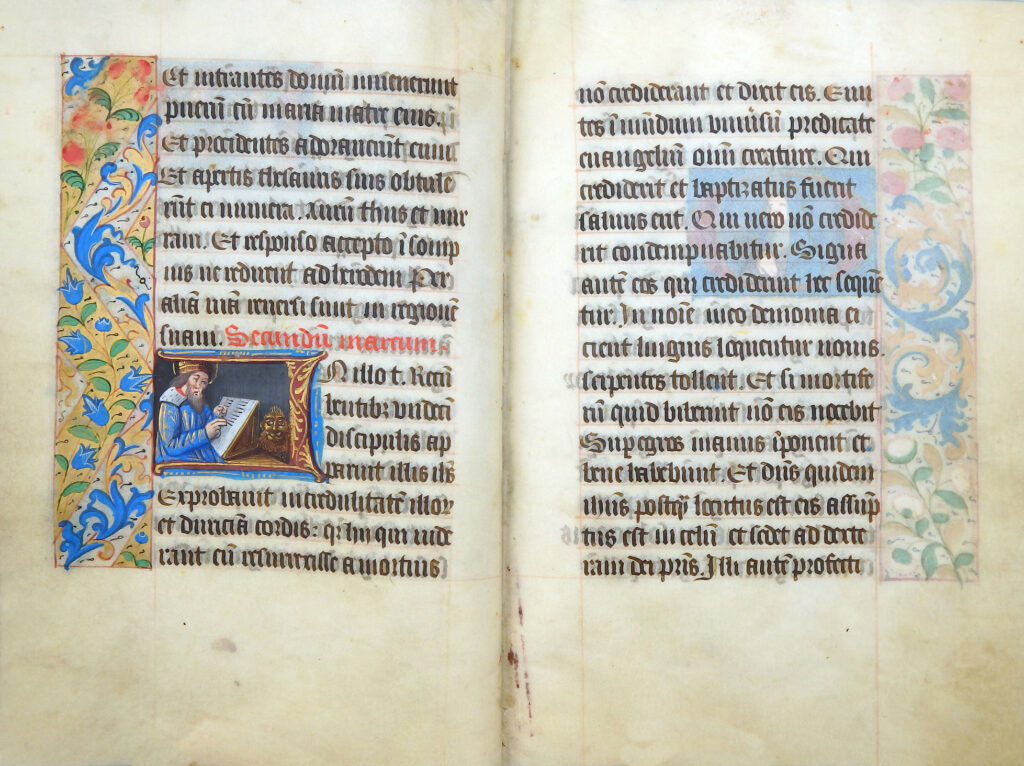 Et intrantes domū invenerunt
puerū cū maria matre eius.
Et procidentes adoraverunt eum.
Et apertis thesauris suis obtule
rūt ei munera. Aurū thus et mir
ram. Et responso accepto ī somp
nis ne redirent ad herodem Per
aliā viā reversi sunt in regionē
suam. Secundū marcum
N illo t. Recū
bentibꝰ undeci
discipulis ap
paruit illis ihs
Exprobavit incredulitatē illoꝝ
et duriciā cordis: qꝛ hii qui vide
rant eū resurrexisse a mortuis
nō crediderant et dixit eis. Eun
tes ī mundum universū predicate
euangeliū omni creature. Qui
crediderit et baptizatus fuerit
salvus erit. Qui vero nō credide
rit condempnabitur. Signa
autē eos qui crediderint hec sequē
tur. In noīe meo demonia ei
cient linguis loquentur novis.
serpentes tollent. Et si mortife
rū quid biberint nō eis nocebit
Sup egros manus īponent et
bene habebunt. Et dn̄s quidem
ihūs postqꝫ locutus est eis assūp
tus est in celum et sedet ad dexte
ram dei pr̄is. Illi autē profecti